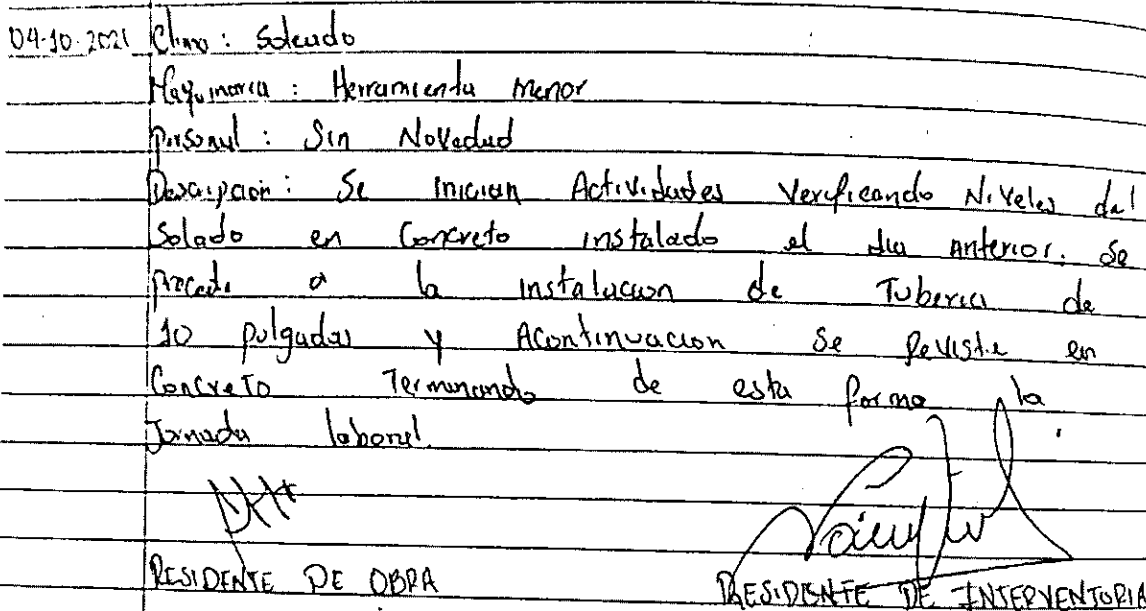 04-10-2021 Clima: Soleado
Maquinaria: Herramienta menor
Personal: Sin Novedad
Descripcion: Se inician Actividades Verificando Niveles del
Solado en Concreto instalado el dia anterior. Se
procede a la instalacion de Tuberia de
10 pulgadas y Acontinuacion Se Reviste en
Concreto Terminando de esta forma la
Jornada laboral.
RESIDENTE DE OBRA RESIDENTE DE INTERVENTORIA